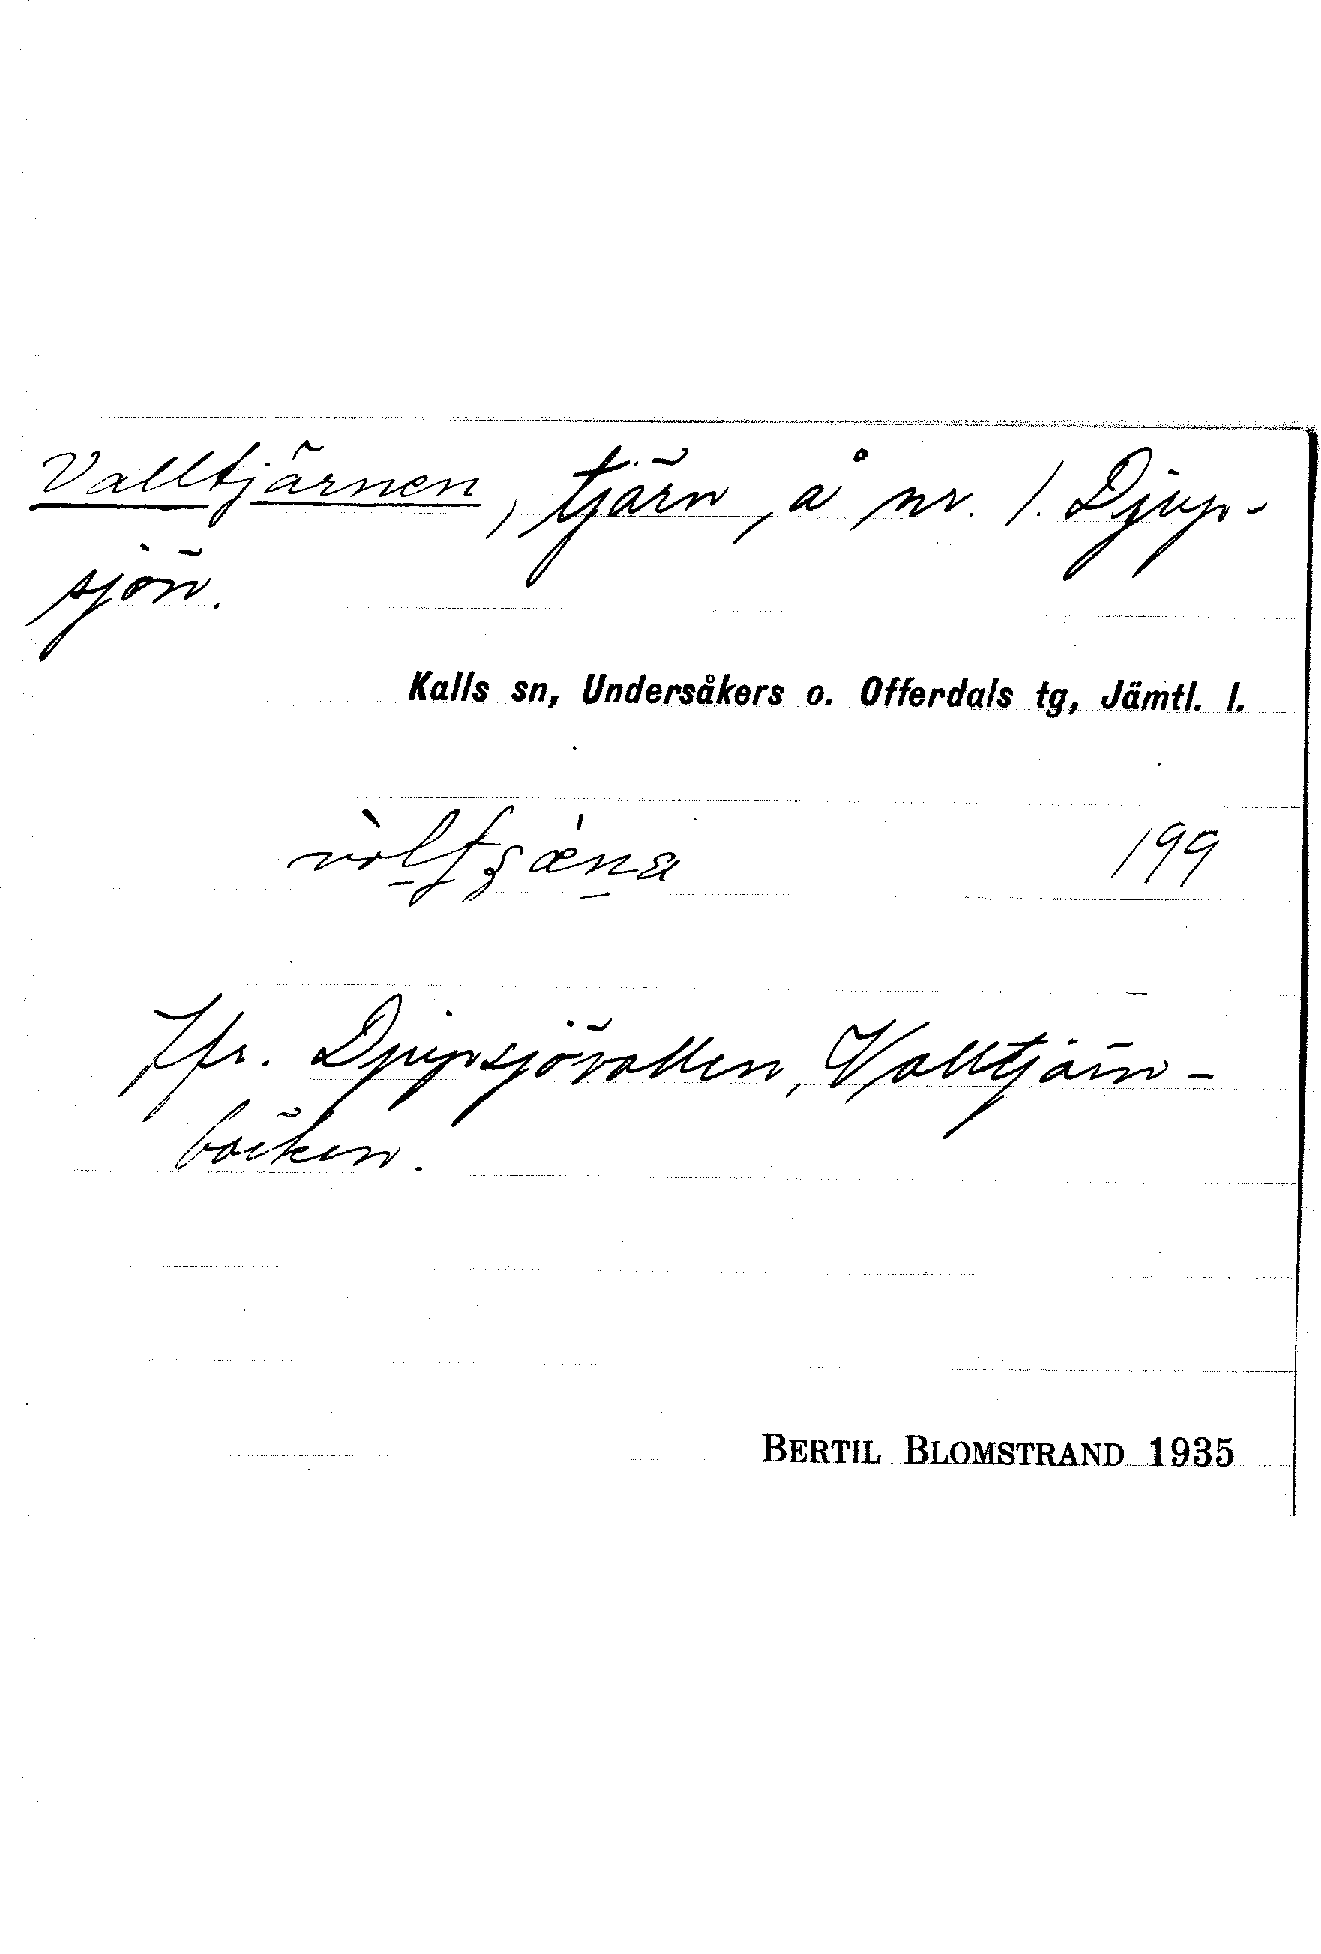 Valltjärnen, tjärn, å nr. 1. Djup-
sjön.
Kalls sn, Undersåkers o. Offerdals tg, Jämtl. l.
199
Jfr. Djupsjövallen, Valltjärn-
bäcken.
BERTIL BLOMSTRAND 1935